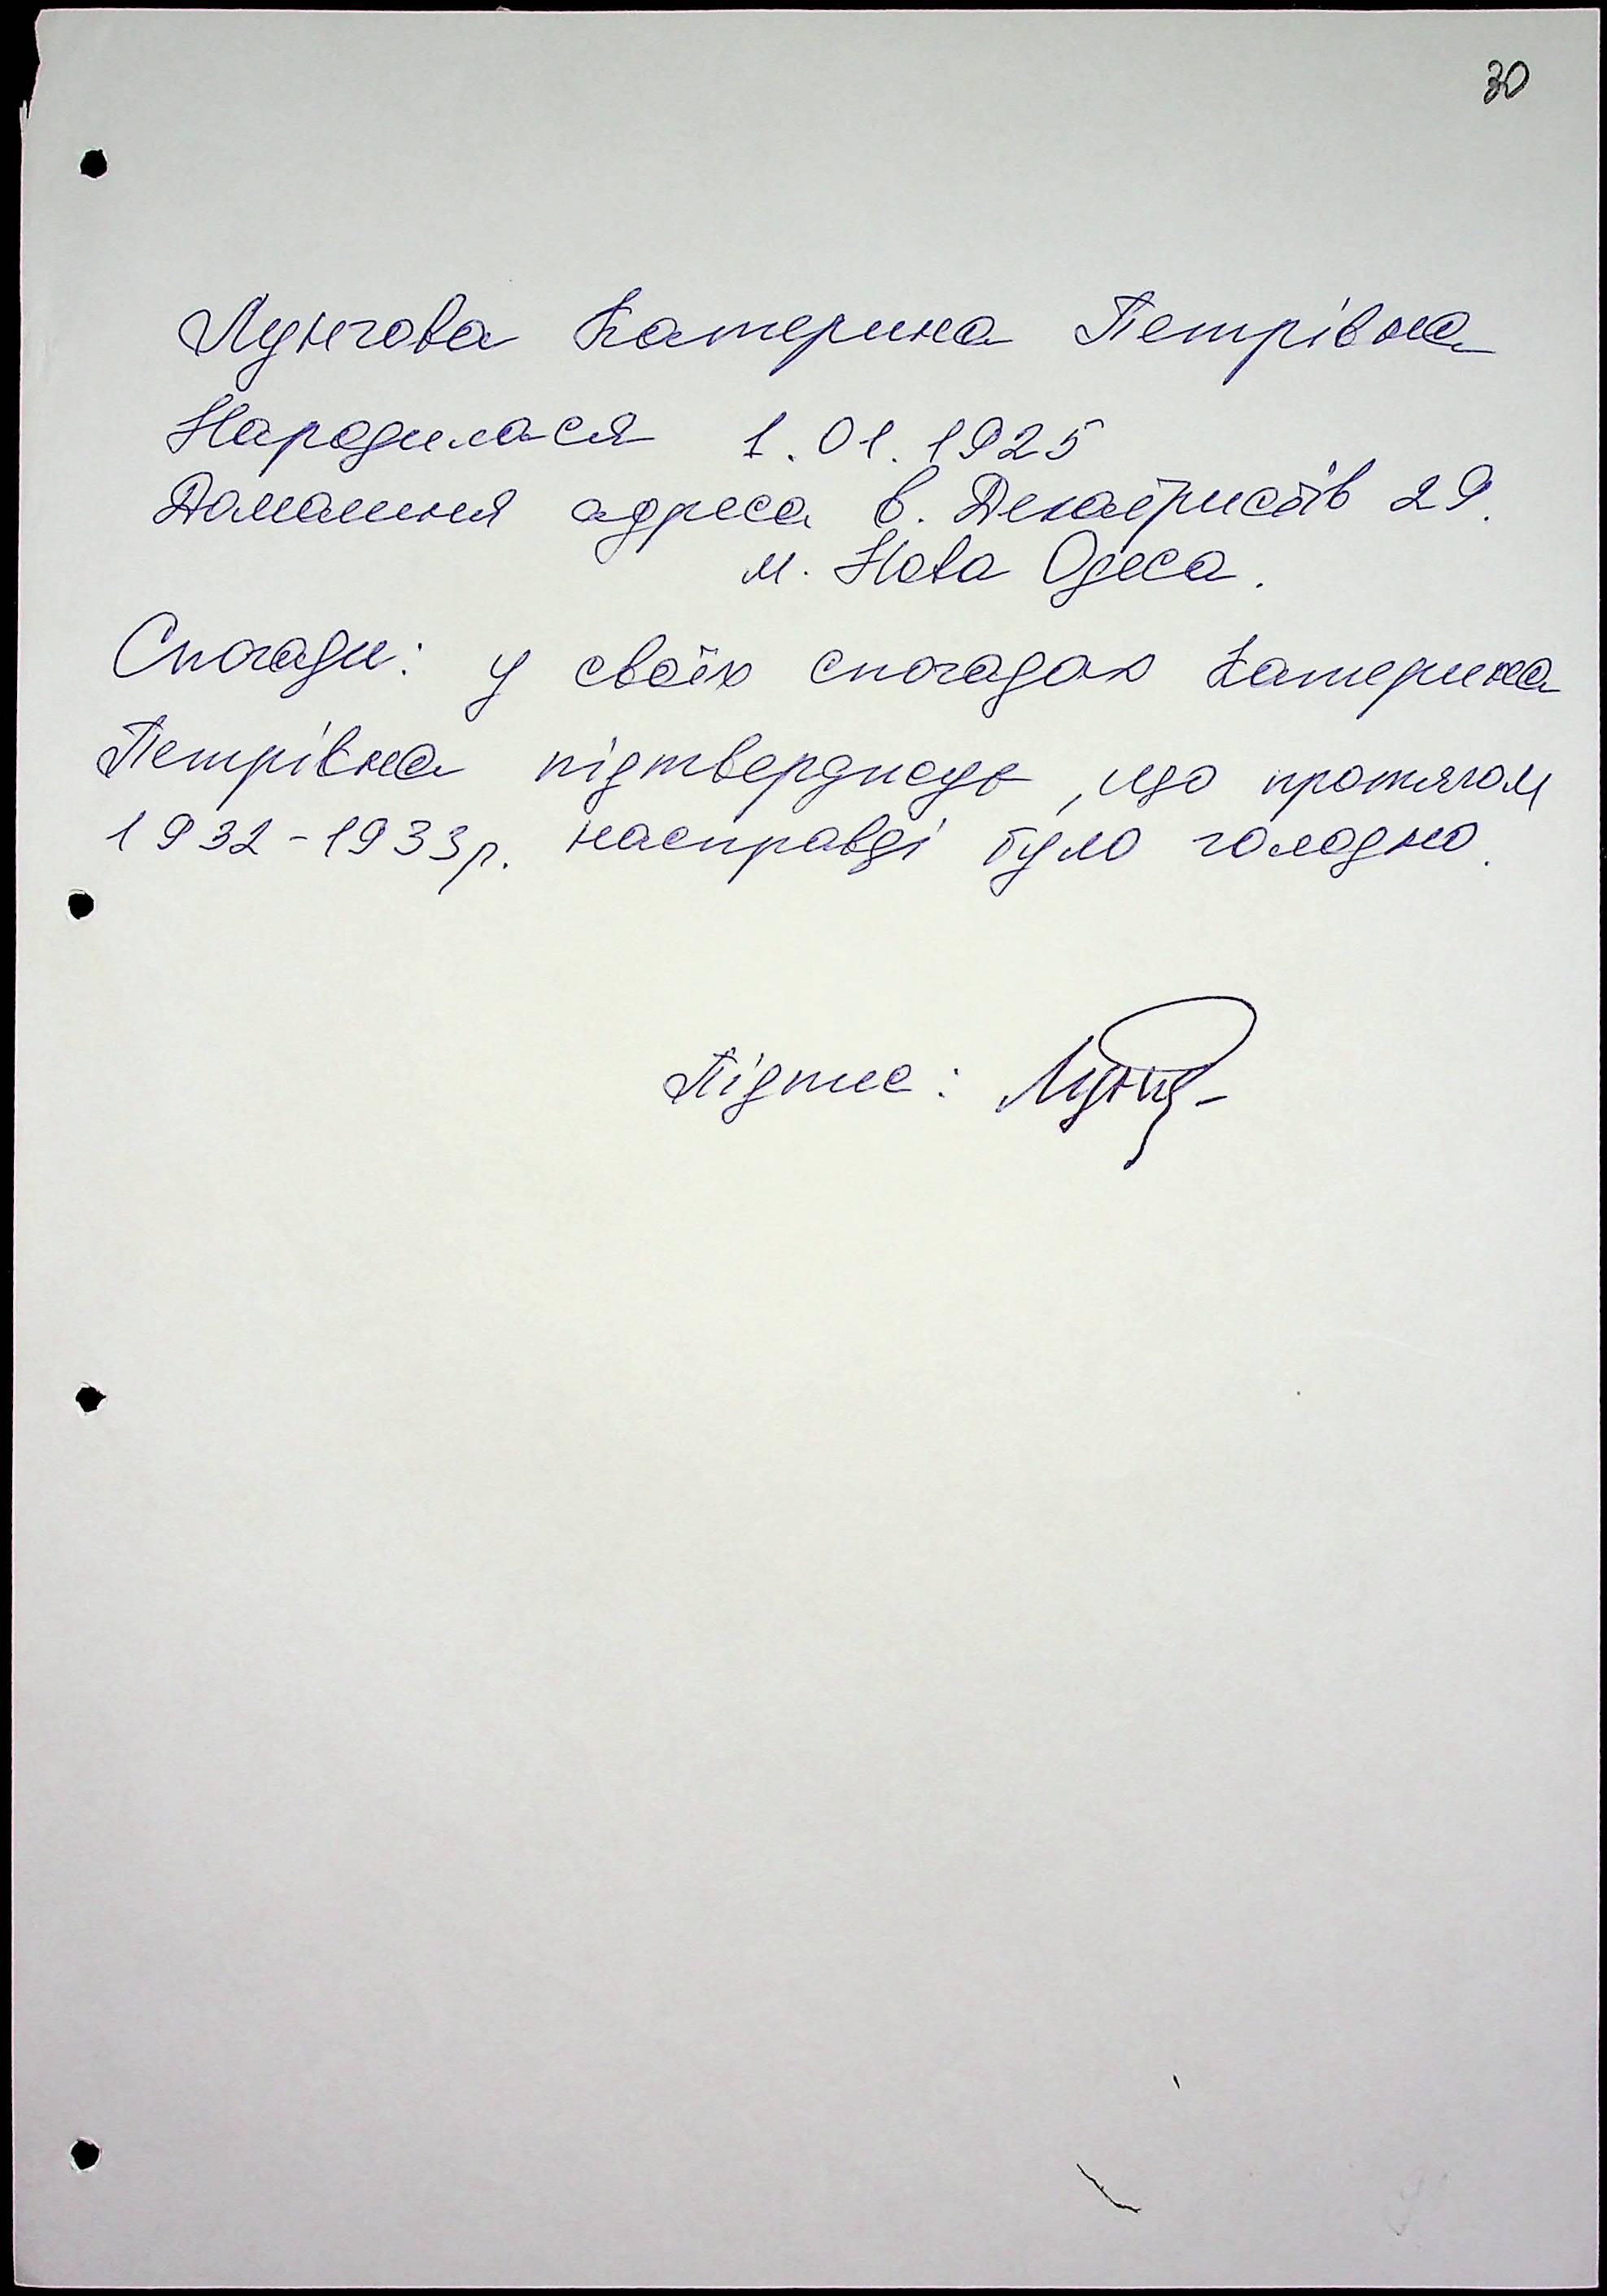 30
Лунгова Катерина Петрівна
Народилася 1.01.1925
Домашня адреса в. Декабристів 29.
м. Нова Одеса.
Спогади: у своїх спогадах Катерина
Петрівна підтверджує, що протягом
1932-1933р. насправді було голодно.
Підпис: